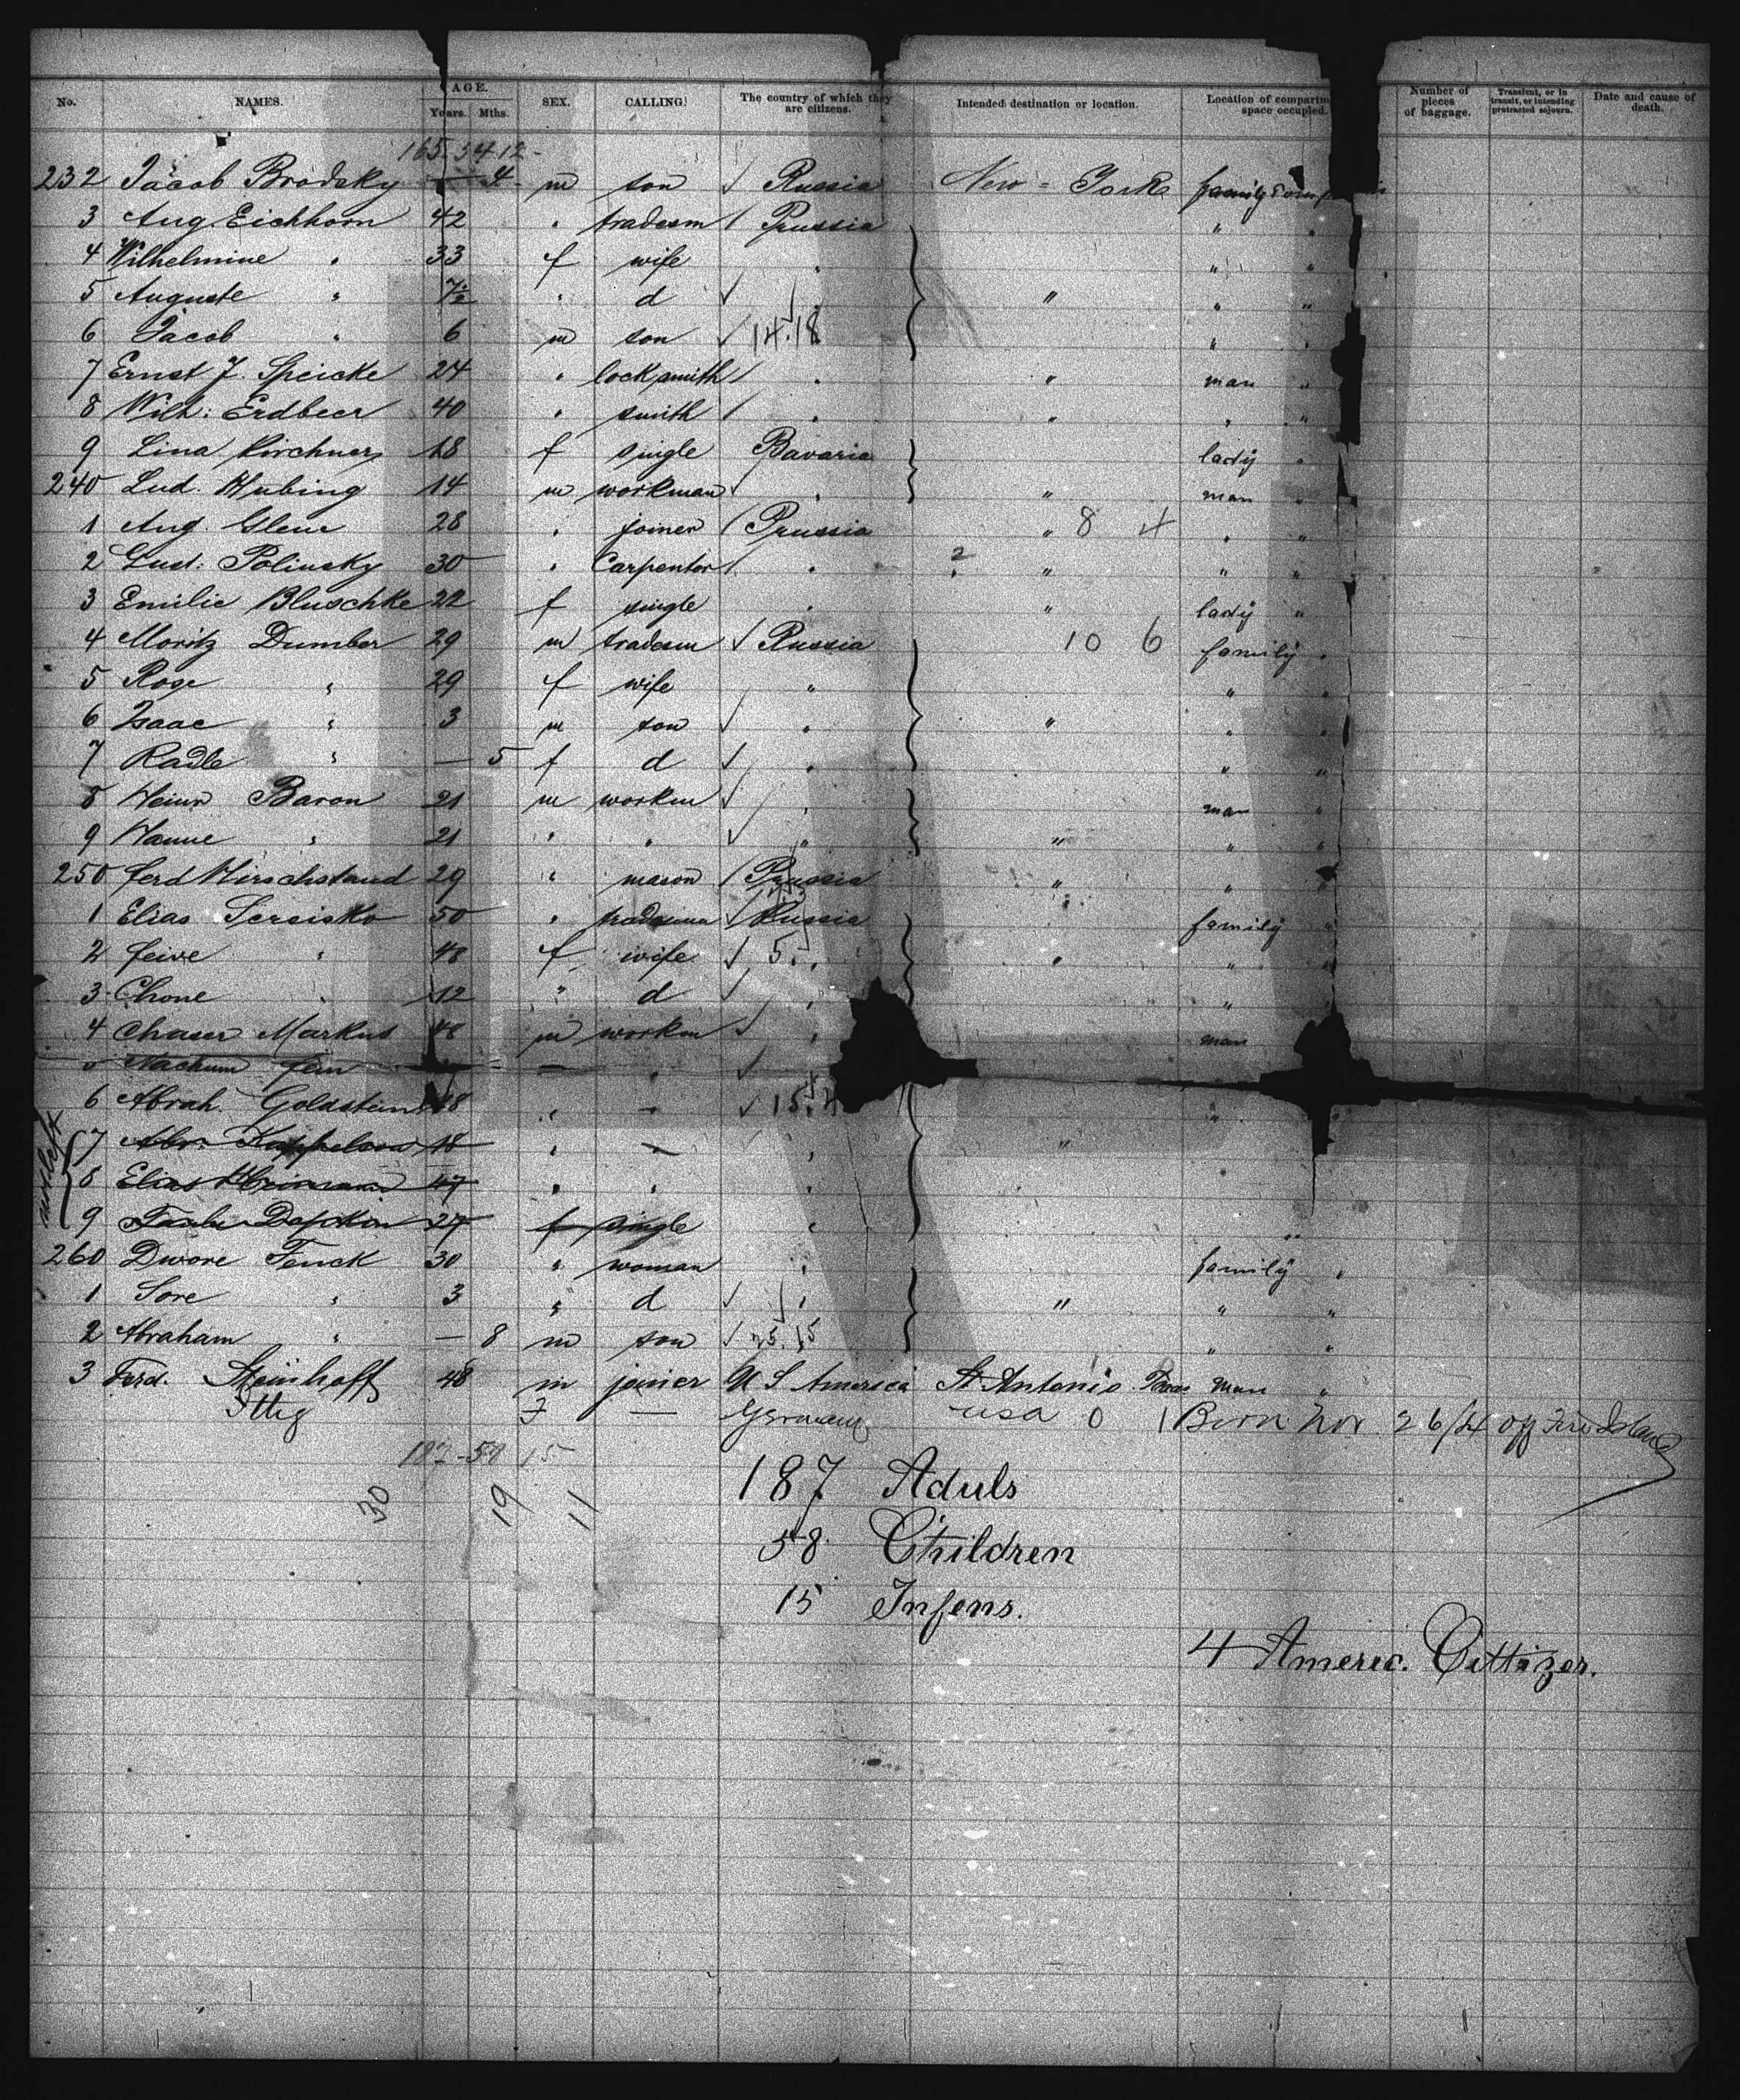 No. NAMES. AGE. Years. Mths. SEX. CALLING. The country of which they are citizens. Intended destination or location. Location of compartm space occupied. Number of pieces of baggage. Transient, or in transit, or intending protracted sojourn. Date and cause of death.
165. 54 12 -
232 Jacob Brodsky — 4 m son √ Russia New = York family
3 Aug. Eichhorn 42 " tradesm / Prussia " "
4 Wilhelmine " 33 f wife " " "
5 Auguste " " d √ " " " "
6 Jacob " 6 m son √ 14.18 " "
7 Ernst J. Speicke 24 " locksmith / " " man "
8 Wilh: Erdbeer 40 " smith / " " " "
9 Lina Kirchner 18 f single Bavaria lady "
240 Lud. Hubing 14 m workman √ " " man "
1 Aug. Glenr 28 " joiner / Prussia " 8 4 " "
2 Gust: Polinsky 30 " Carpenter / " 2 " " "
3 Emilie Bluschke 22 f single " " lady "
4 Moritz Dumber 29 m tradesm √ Russia 10 6 family "
5 Rose " 29 f wife " " "
6 Isaac " 3 m son √ " " " "
7 Radle " — 5 f d √ " " "
8 Heinr Baron 21 m workm √ " man "
9 Hanne " 21 " " √ " " " "
250 Ferd Hirschstand 29 " mason / Prussia " " "
1 Elias Sereisko 50 " √ Russia family "
2 Feive " 48 f wife √ 5. " " " "
3 Chone " 12 " d √ " "
4 Chaser Markus 48 m workm √ " man
Nachum Fein " √
6 Abrah. Goldstein 48 " " √ 15. " "
7 18 " " " "
8 Elias 47 " " "
9 27 f single " "
260 Dwore Fenck 30 " woman " family "
1 Sore " 3 " d √ " " " "
2 Abraham " — 8 m son √ 25.15 " "
3 Ferd. Steinhoff 48 m joiner U S America St. Antonio Texas man "
Ittig F — Germany usa 0 1 Born Nov 26/84 off Fire Island
187 - 58 15
30 19 11
187 Aduls
58 Children
15 Infens.
4 Americ. Cittizer.